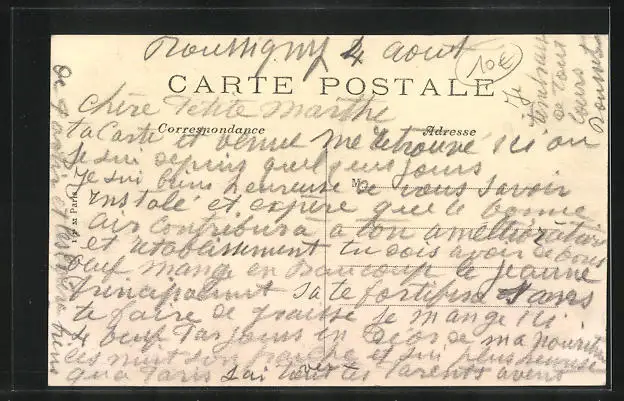 Roussigny 4 aout
10€
CARTE POSTALE
Correspondance
Adresse
chère Petite Marthe
ta Carte et venue me retrouvé ici ou
Je sui depuis quelques jours
Je sui biens heureuse de vous savoir
instalé et espère que le bonne
air contribura a ton amélioration
et rétablissement tu dois avoir de bons
oeuf mange en Beaucoup le jeaune
principalement sa te fortifira sans
te faire de graisse Je mange ici
4 oeuf par jours en deors de ma nouriture
les nuit son fraiche et sui plus heureuse
qua Paris Jai tous tes Parents avens
Je
tembrasse
de tout